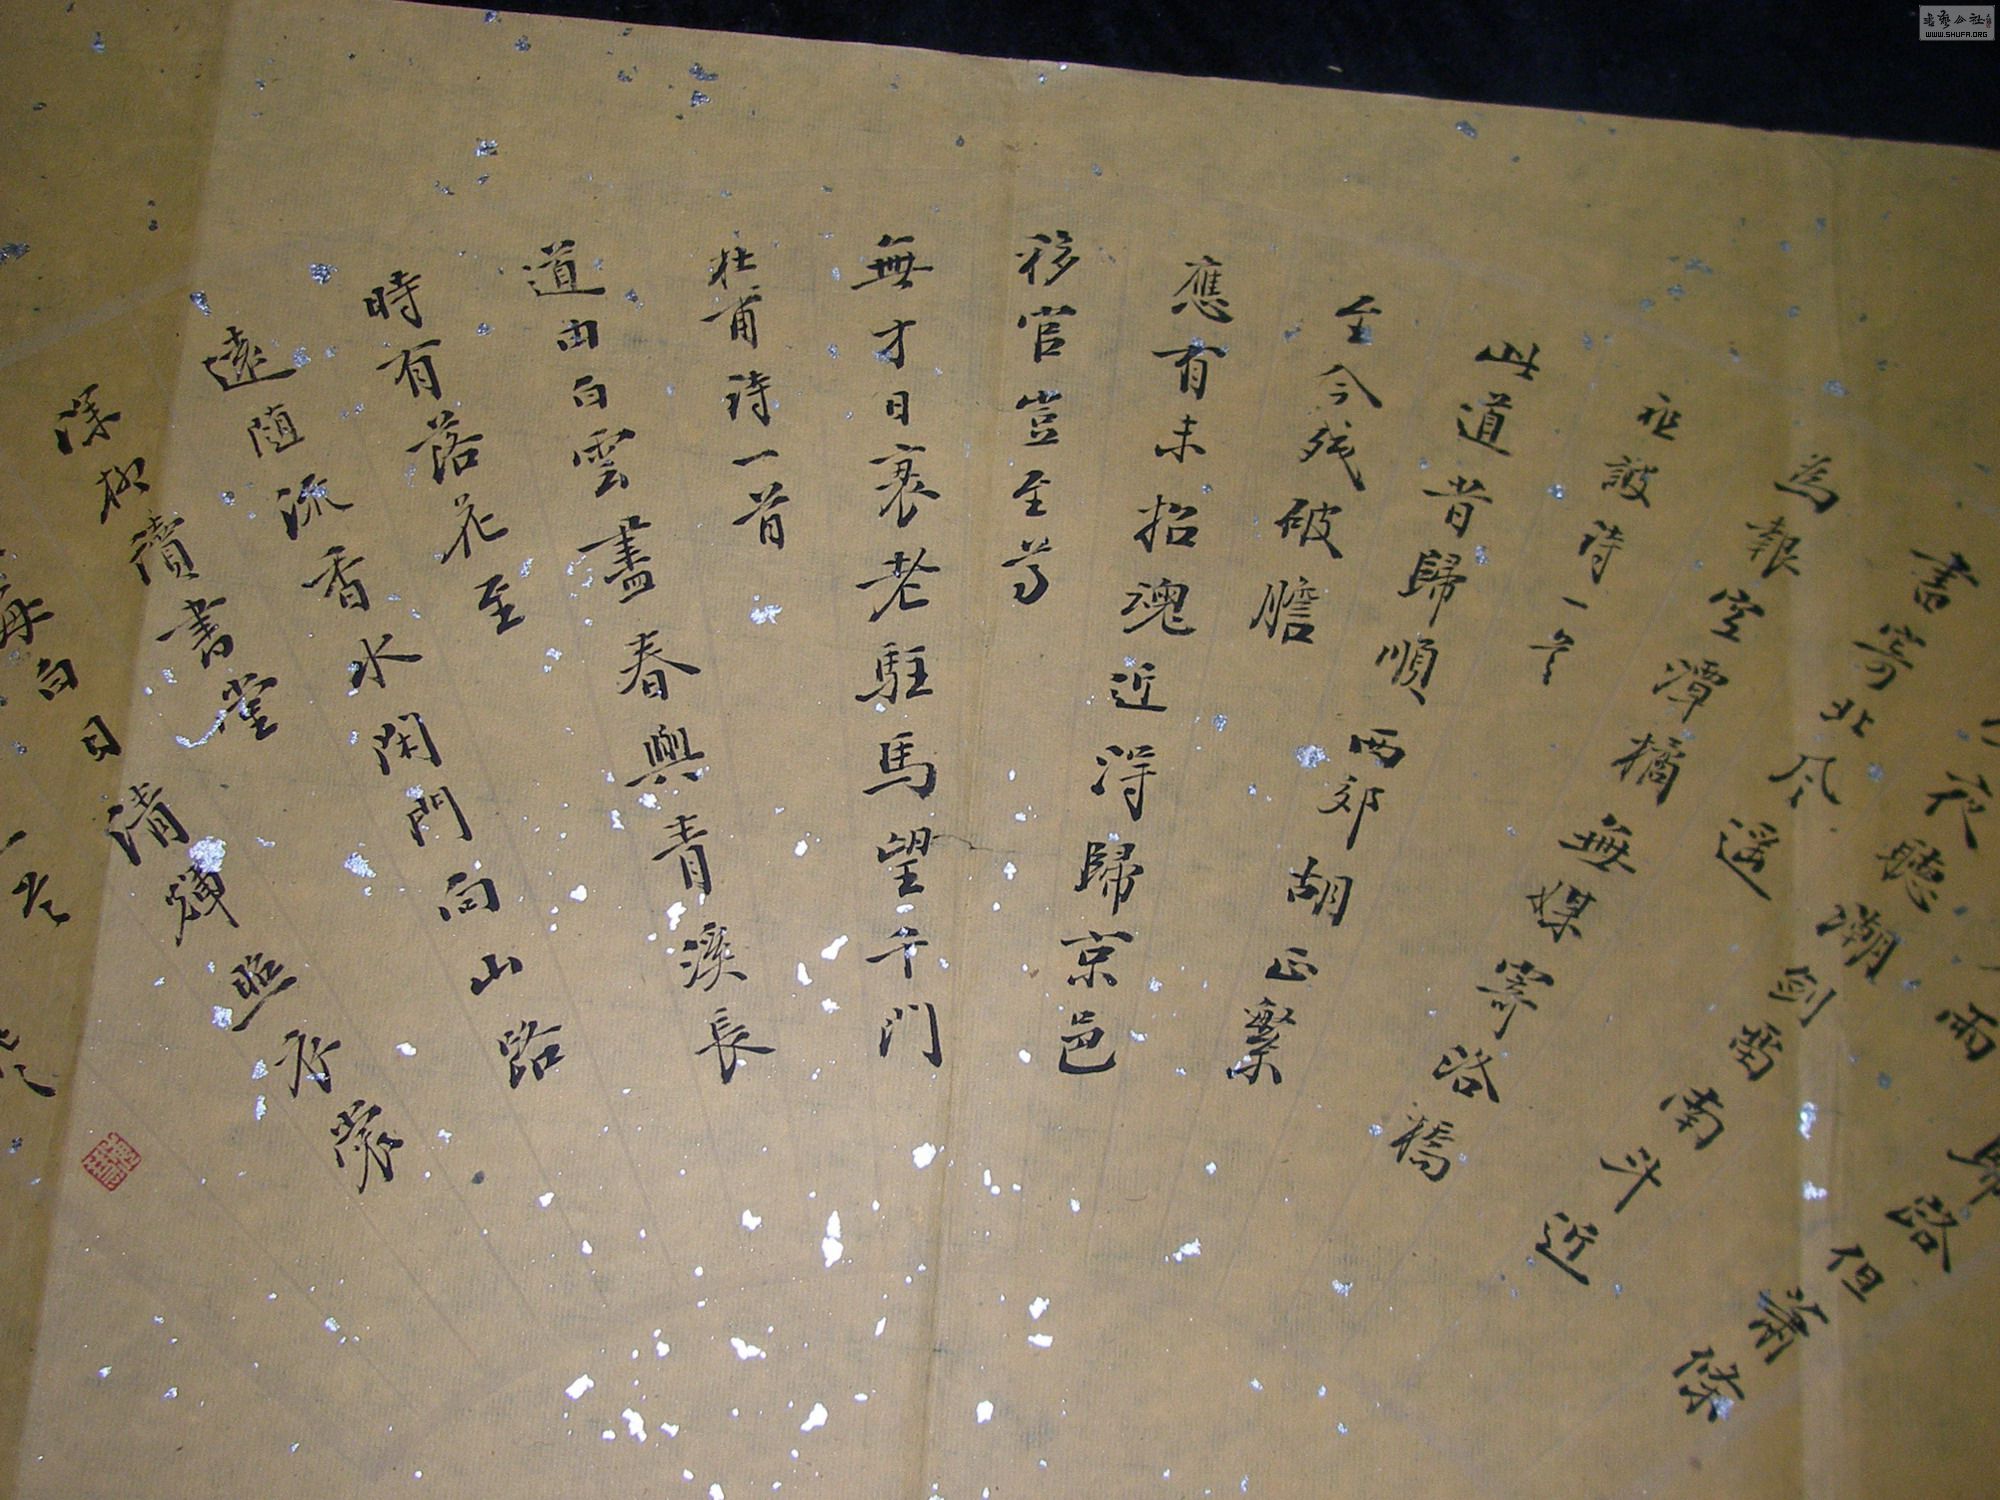 歸路但蕭條
雨
夜聽潮劍留南斗近
書寄北风遥
為報空潭橘無媒寄洛橋
祖詠詩一首
此道昔歸順西郊胡正繁
至今殘破膽
應有未招魂近得歸京邑
移官豈至尊
無才日衰老駐馬望千門
杜甫詩一首
道由白雲盡春與青溪長
時有落花至
遠隨流香水閑門向山路
深柳讀書堂
每白日清輝照衣裳
一首
WWW.SHUFA.ORG